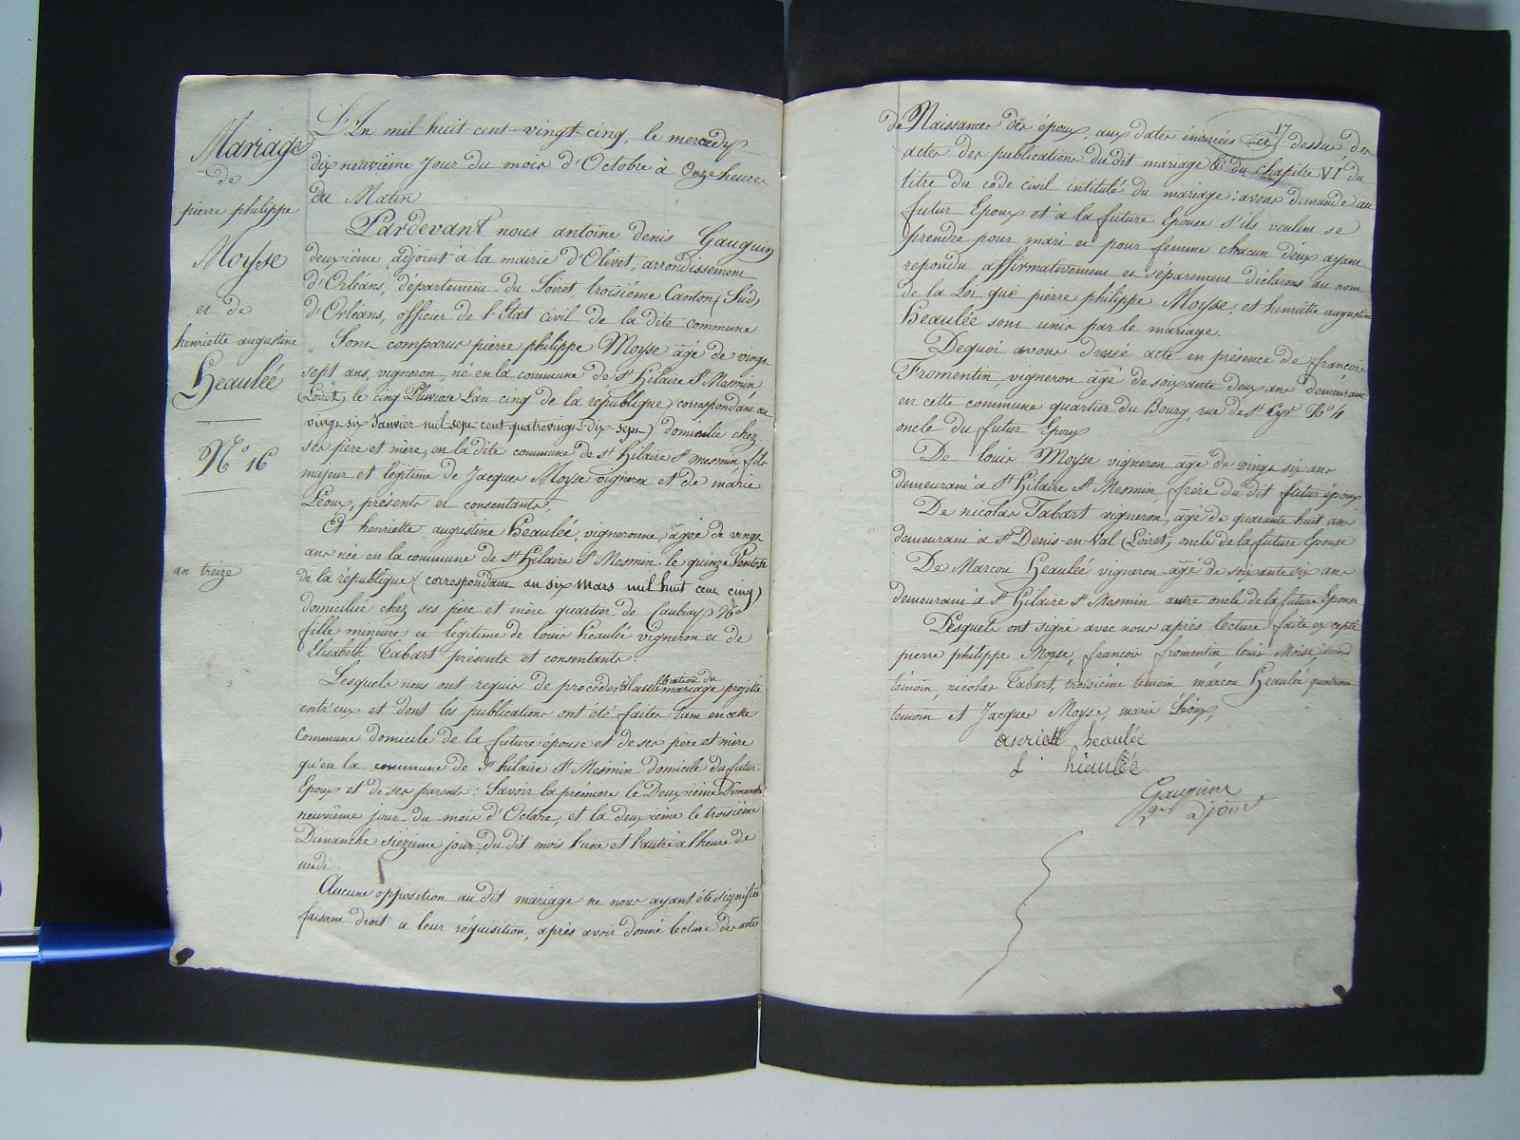 Mariage
de
pierre philippe
Moyse
et de
henriette augustine
Heaulée
N.° 16
an treize
L'An mil huit cent-vingt-cinq, le mercredy
dix neuvième Jour du mois d'Octobre à Onze heures
du Matin
Pardevant nous antoine denis Gauguin
deuxième adjoint à la mairie d'Olivet, arrondissement
d'Orléans, département du Loiret troisième Canton (Sud)
d'Orléans, officier de l'Etat civil de la dite commune
Sont comparus pierre philippe Moyse âgé de vingt
sept ans, vigneron, né en la commune de St Hilaire St Mesmin
(Loiret) le cinq Pluviose L'an cinq de la république (correspondant au
vingt six Janvier mil sept cent quatrevingt-dix-sept) domicilié chez
ses père et mère, en la dite commune de St Hilaire St mesmin, fils
majeur et légitime de Jacques Moyse vigneron et de marie
Léoux, présents et consentants,
Et henriette augustine Heaulée, vigneronne, âgée de vingt
ans née en la commune de St Hilaire St Mesmin le quinze Ventose
de la république (correspondant au six mars mil huit cent cinq)
domiciliée chez ses père et mère quartier de Caubray N.°
fille mineure et légitime de louis heaulée vigneron et de
Elisabeth Tabart présents et consentants.
Lesquels nous ont requis de procéder à la célébration du mariage projetté
entr'eux et dont les publications ont été faites tant en cette
Commune domicile de la future épouse et de ses père et mère
qu'en la commune de St hilaire St Mesmin domicile du futur
Epoux et de ses parents : Savoir la première le Deuxième Dimanche
neuvième jour du mois d'Octobre, et la deuxième le troisième
Dimanche sizième jour du dit mois l'une et l'autre à l'heure de
midi.
Aucune opposition au dit mariage ne nous ayant été signifiée
faisant droit a leur réquisition, après avoir donné lecture des actes
17
de Naissances des époux aux dates énoncées ci dessus des
actes des publications du dit mariage et du chapitre VI du
titre du code civil intitulé du mariage : avons demandé au
futur Epoux et à la future Epouse s'ils veulent se
prendre pour mari et pour femme chacun d'eux ayant
repondu affirmativement et séparément déclarons au nom
de la Loi que pierre philippe Moyse, et henriette augustine
Heaulée sont unis par le mariage.
Dequoi avons dressé acte en présence de françois
Fromentin vigneron âgé de soixante deux ans demeurant
en cette commune quartier du Bourg, rue de St Cyr N.° 4
oncle du futur Epoux
De louis Moyse vigneron âgé de vingt six ans
demeurant à St Hilaire St Mesmin, frère du dit futur époux,
De nicolas Tabart vigneron, âgé de quarante huit ans
demeurant à St Denis-en-Val (Loiret), oncle de la future Epouse
De Marcou Heaulée vigneron âgé de soixante six ans
demeurant à St Hilaire St Mesmin autre oncle de la future Epouse
Lesquels ont signé avec nous après lecture faite excepté
pierre philippe Moyse, françois fromentin louis Moise second
témoin, nicolas Tabart, troisième témoin marcou Heaulée quatrième
temoin et Jacques Moyse, marie Léoux,
heaulée
L heaulée
Gauguin
2e adjoint